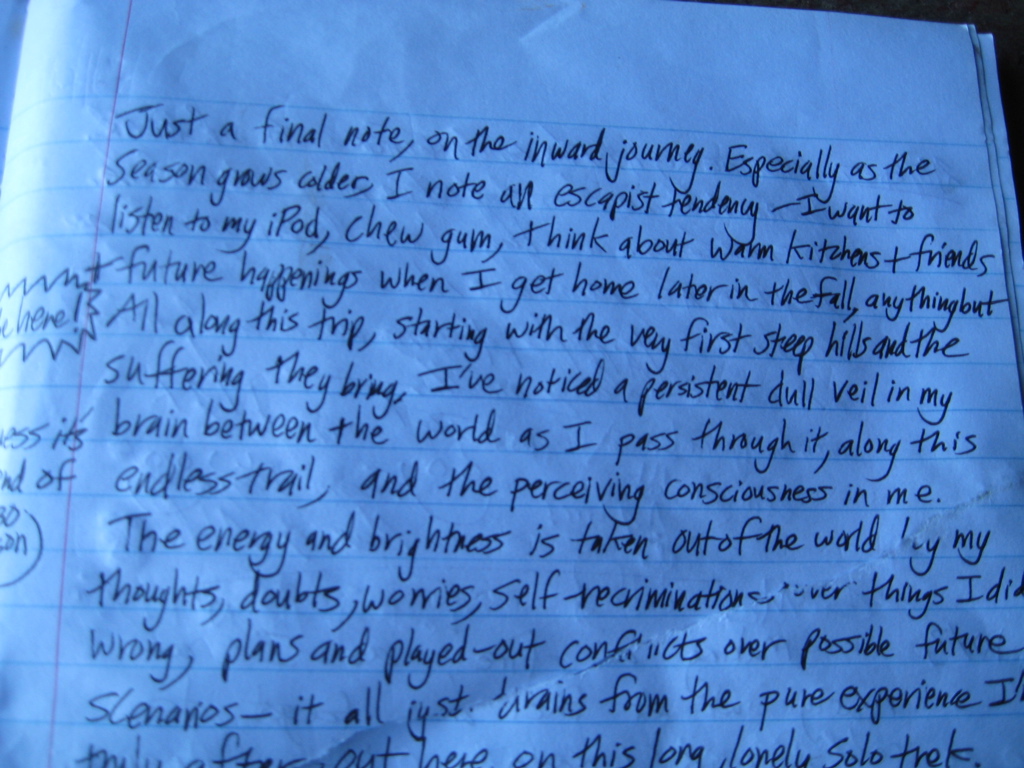 Just a final note, on the inward journey. Especially as the
Season grows colder, I note an escapist tendency — I want to
listen to my iPod, chew gum, think about warm kitchens + friends
+ future happenings when I get home later in the fall, anything but
here! All along this trip, starting with the very first steep hills and the
suffering they bring, I've noticed a persistent dull veil in my
its brain between the world as I pass through it, along this
of endless trail, and the perceiving consciousness in me.
The energy and brightness is taken out of the world by my
thoughts, doubts, worries, self-recriminations over things I did
wrong, plans and played-out conflicts over possible future
scenarios — it all just drains from the pure experience
truly after out here on this long, lonely solo trek.